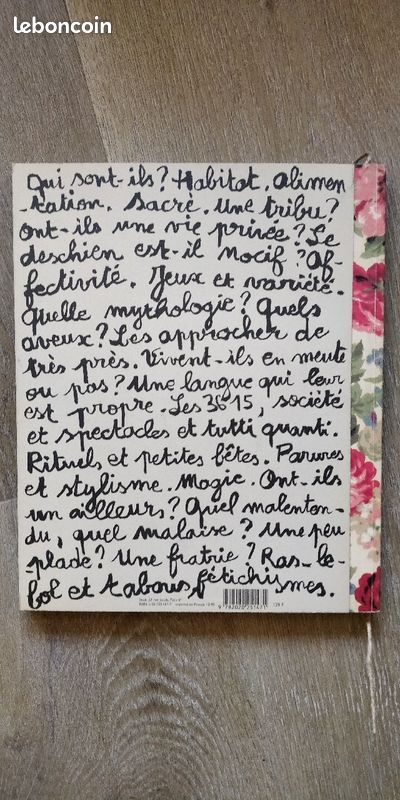 leboncoin
Qui sont-ils? Habitat. alimen
-tation. Sacrè. Une tribu?
Ont-ils une vie privée? Le
deschien est-il nocif? Af-
fectivité. Jeux et variété-
Quelle mythologie? Quels
aveux? Les approcher de
très près. Vivent-ils en meute
ou pas? Une langue qui leur
est propre. Les 36 15, société
et spectacles et tutti quanti.
Rituels et petites bêtes. Parures
et stylisme. Magie. Ont-ils
un ailleurs? Quel malenten-
du, quel malaise? Une peu
plade? Une fratrie? Ras-le-
bol et tabous, fétichismes.
9 782020 251471